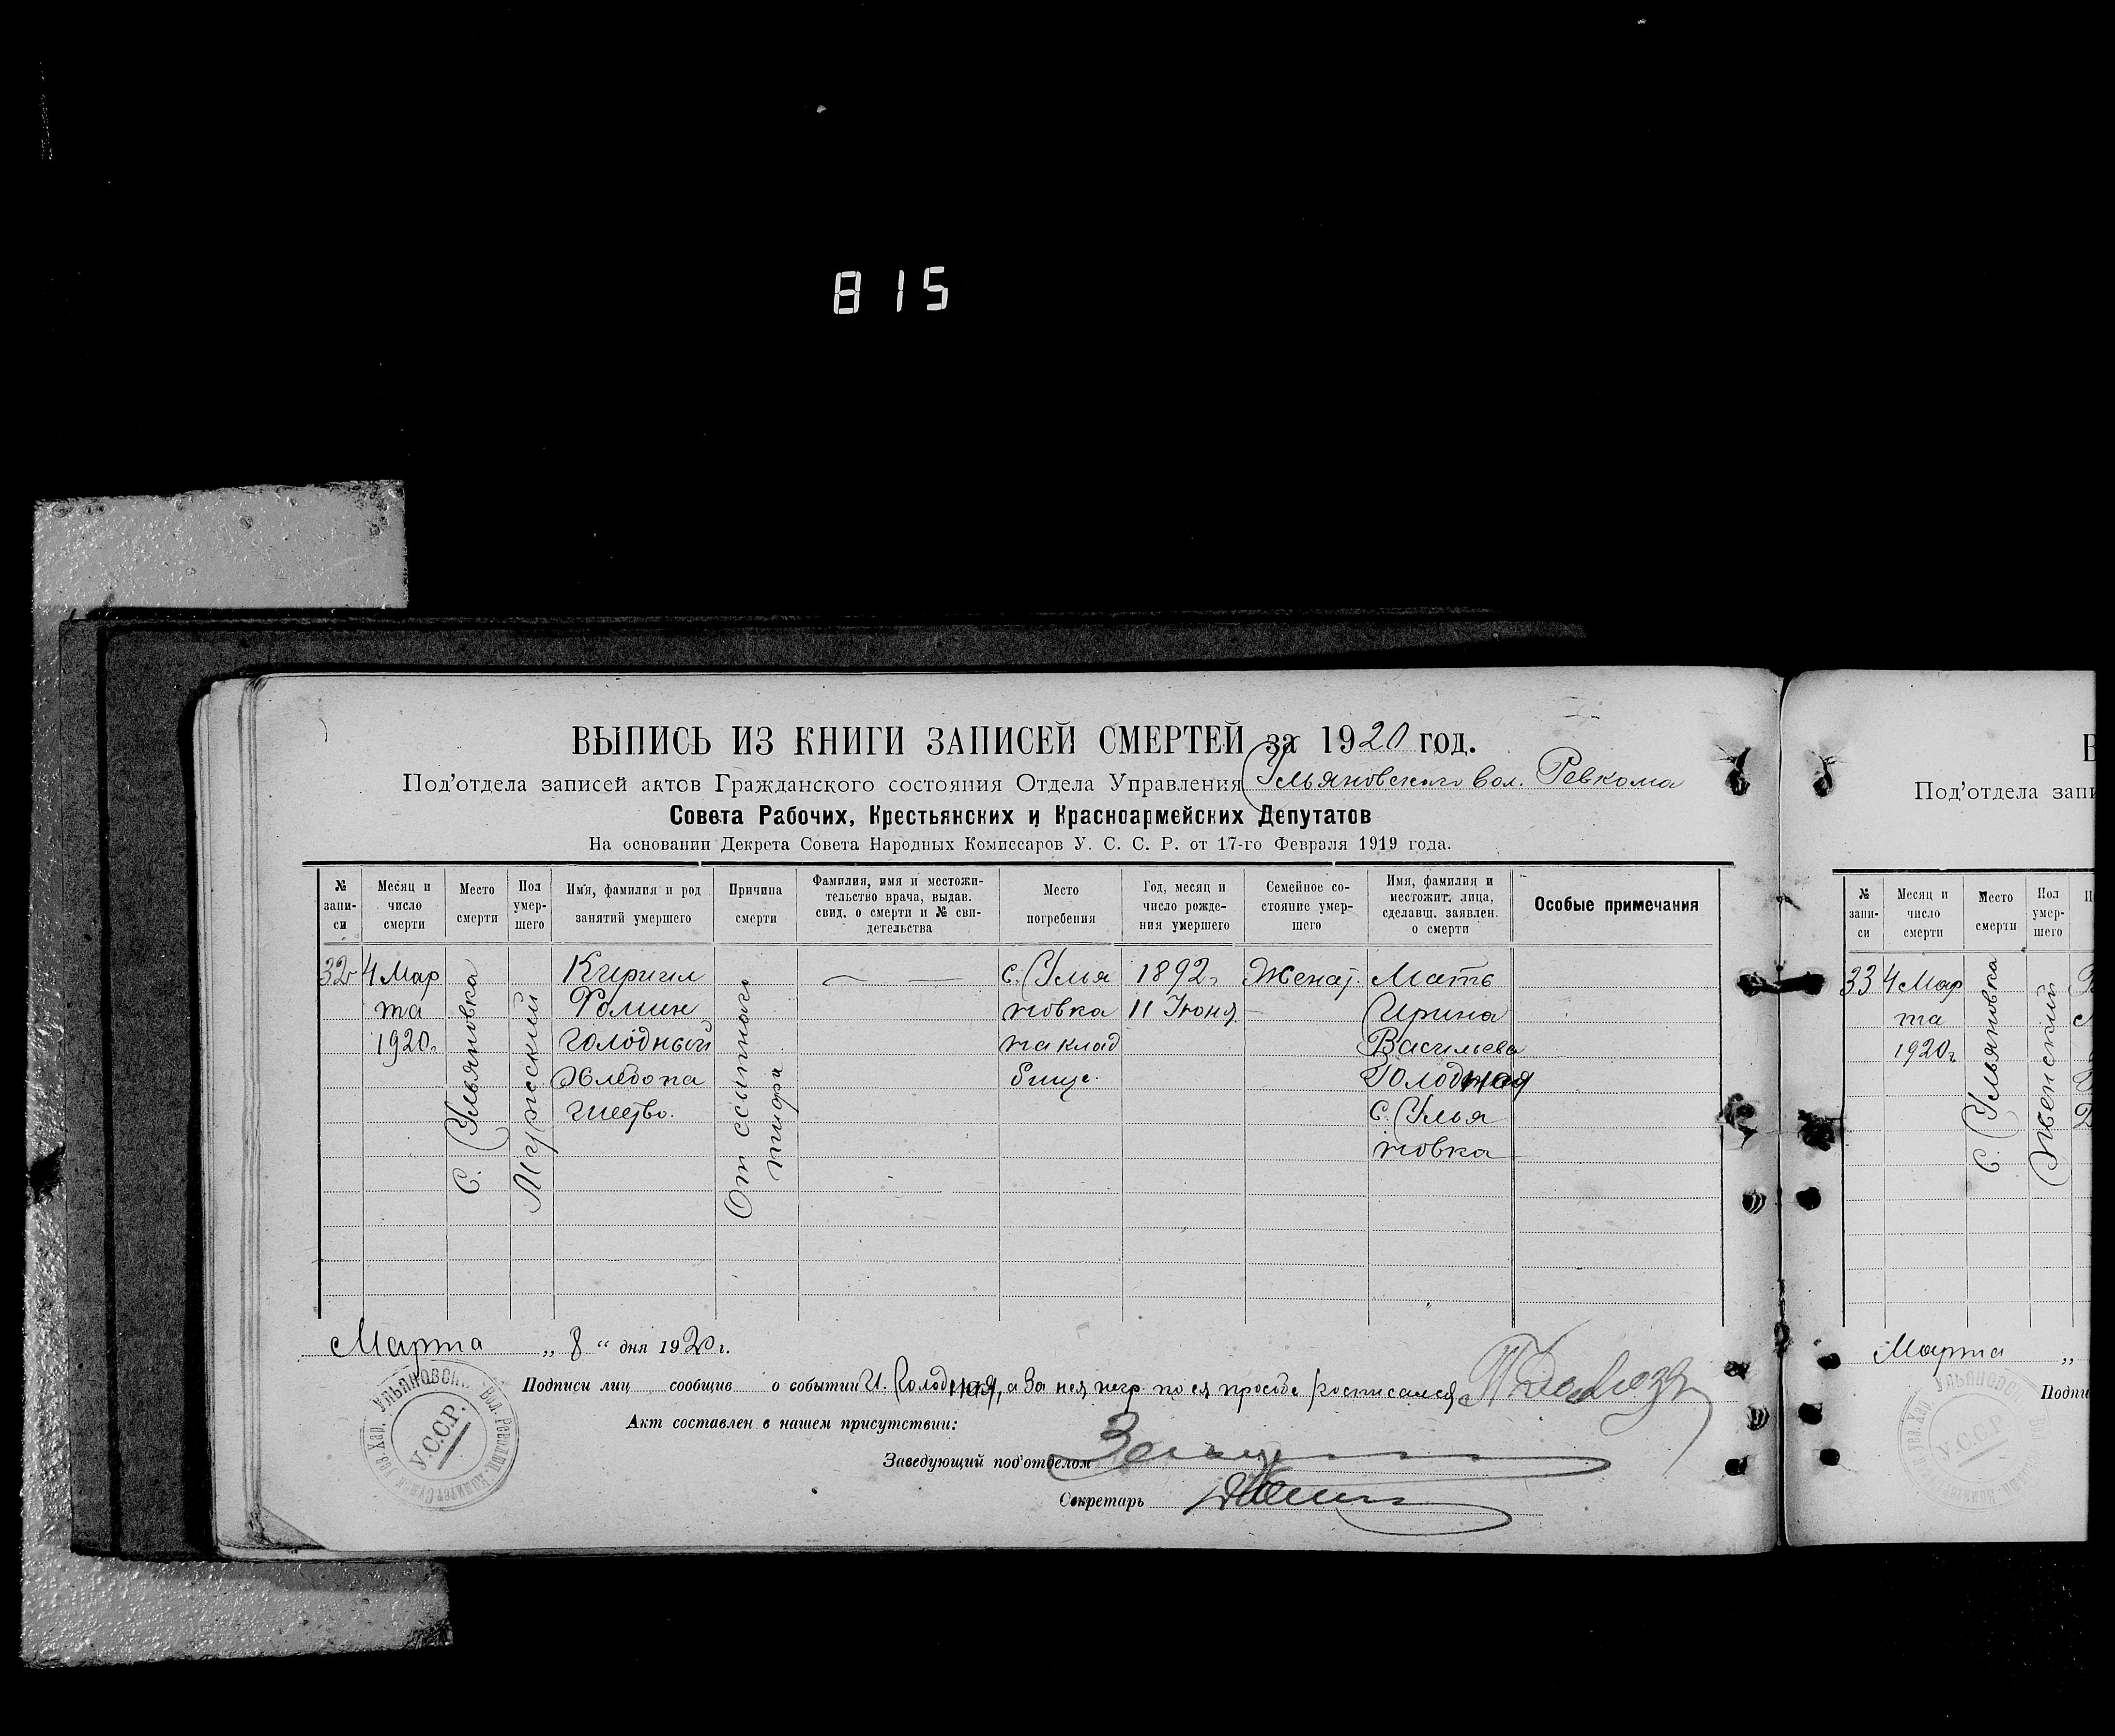 815
ВЫПИСЬ ИЗ КНИГИ ЗАПИСЕЙ СМЕРТЕЙ за 1920 год.
Под'отдела записей актов Гражданского состояния Отдела Управления Ульяновского вол. Ревкома
Совета Рабочих, Крестьянских и Красноармейских Депутатов
На основании Декрета Совета Народных Комиссаров У. С. С. Р. от 17-го Февраля 1919 года.
№ запи- си
Месяц и число смерти
Место смерти
Пол умер- шего
Имя, фамилия и род занятий умершего
Причина смерти
Фамилия, имя и местожи- тельство врача, выдав. свид. о смерти и № сви- детельства
Место погребения
Год, месяц и число рожде- ния умершего
Семейное со- стояние умер- шего
Имя, фамилия и местожит. лица, сделавш. заявлен. о смерти
Особые примечания
32
4 Мар
та
1920г.
С. Ульяновка
Мужеский
Кирилл
Фомин
Голодный
Хлебопа
шество.
От сыпного
тифа
с. Улья
новка
на клад
бище.
1892г.
11 Июня
Женат.
Мать
Ирина
Васильева
Голодная
с. Улья
новка
Марта „ 8 “ дня 1920 г.
Подписи лиц сообщив о событии И. Голодная, а за нея негр. по ея просьбе росписался
Акт составлен в нашем присутствии:
Заведующий под'отделом
Секретарь
У.С.С.Р.
В
Под'отдела запи
№ запи- си
Месяц и число смерти
Место смерти
Пол умер- шего
33
4 Мар
та
1920г.
С. Ульяновка
Женский
Марта „
Подпи
У.С.С.Р.